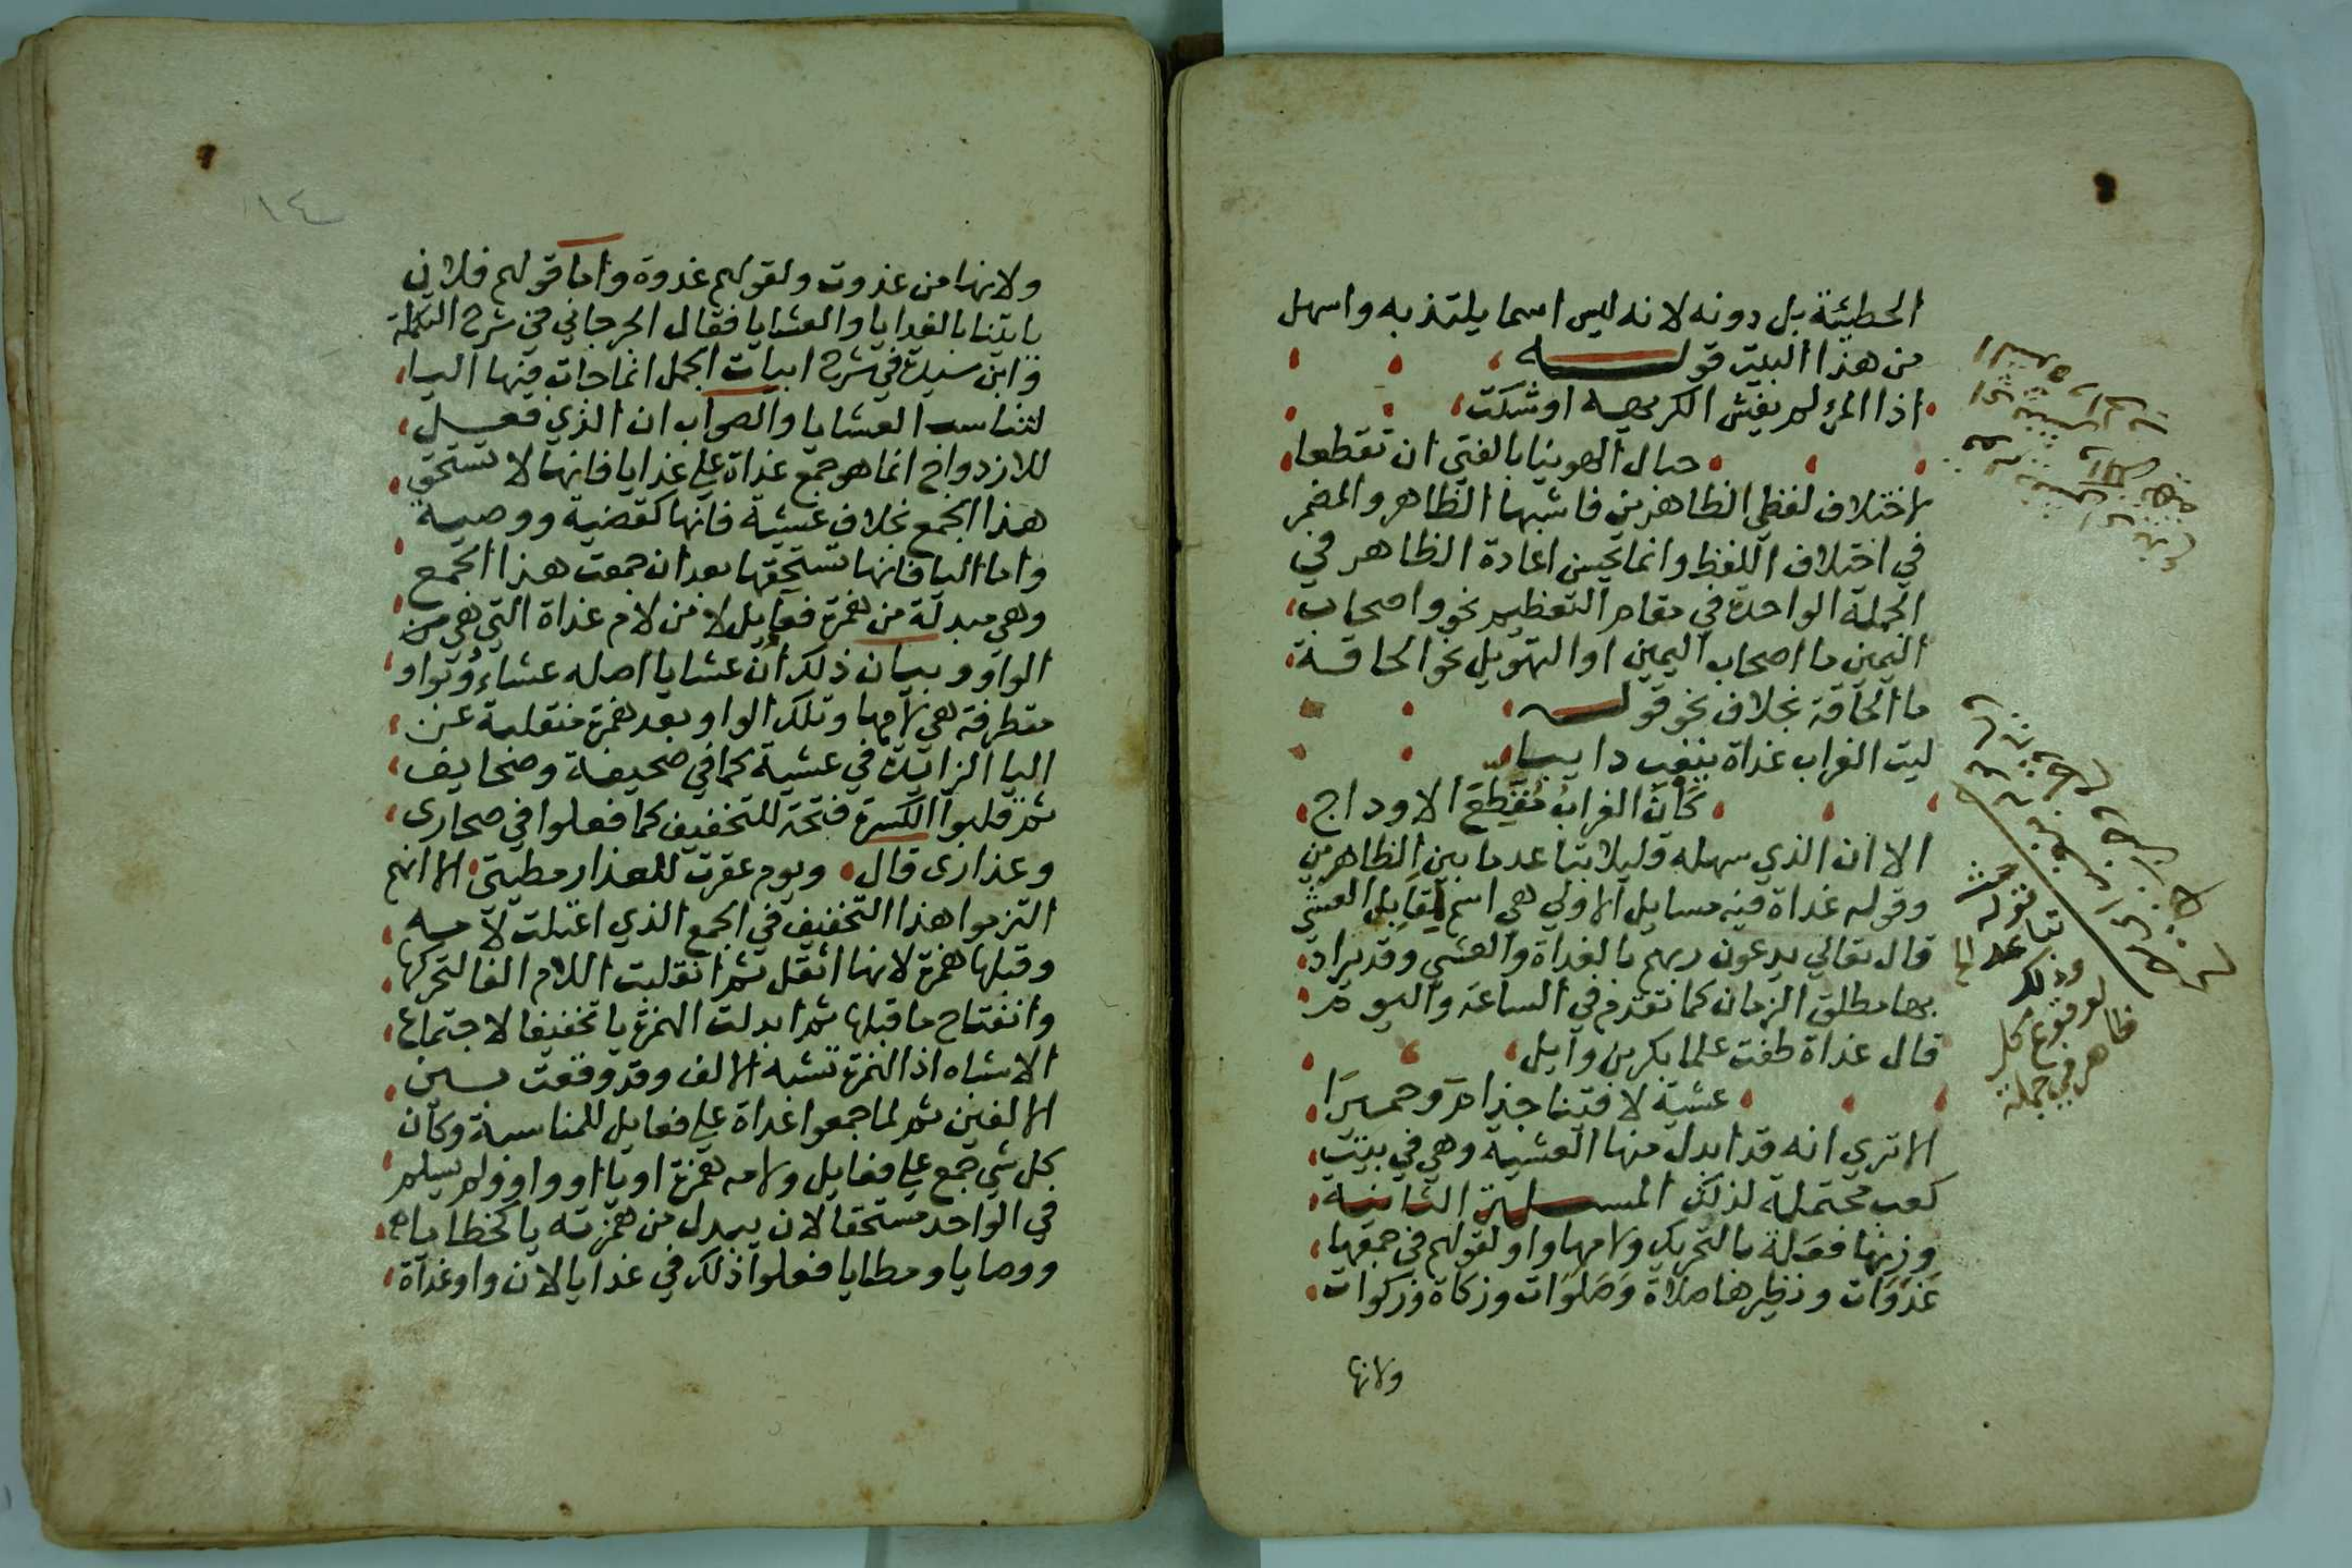 الحطيئة بل دونه لانه ليس اسما يلتذ به واسهل
من هذا البيت قوله
اذا المرء لم يغش الكريهه اوشكت
حبال الهوينا بالفتي ان تقطعا
لاختلاف لفظي الظاهرين فاشبها الظاهر والمضمر
في اختلاف اللفظ وانما يحسن اعادة الظاهر في
الجملة الواحدة في مقام التعظيم نحو واصحاب
اليمين ما اصحاب اليمين او التهويل نحو الحاقة
ما الحاقة بخلاف نحو قوله
ليت الغراب غداة ينعب دايبا
كان الغراب مقطع الاوداج
الا ان الذي سهله قليلا تباعد ما بين الظاهرين
وقوله غداة فيه مسايل الاولي هي اسم لمقابل العشي
قال تعالي يدعون ربهم بالغداة والعشي وقد يراد
بها مطلق الزمان كما تقدم في الساعة واليوم
قال غداة طفت علما بكر بن وايل
عشية لاقينا جذام وحميرا
الا تري انه قد ابدل منها العشية وهي في بيت
كعب محتملة لذلك المسيلة الثانية
وزنها فعلة بالتحريك ولامها واو لقولهم في جمعها
غدوات ونظيرها صلاة وصلوات وزكاة وزكوات
ولانها
قوله
تباعد الخ
وذلك
لوقوع كل
ظاهر في جملة
١٤
ولانها من غدوت ولقولهم غدوة واما قولهم فلان
ياتينا بالغدايا والعشايا فقال الجرجاني في شرح التكملة
وابن سيدة في شرح ابيات الجمل انما جات فيها اليا
لتناسب العشايا والصواب ان الذي فعيل
للازدواج انما هو جمع غداة علي غدايا فانها لا تستحق
هذا الجمع بخلاف عشية فانها كقضية ووصية
واما اليا فانها تستحقها بعد ان جمعت هذا الجمع
وهي مبدلة من همزة فعايل لا من لام غداة التي هي من
الواو وبيان ذلك ان عشايا اصله عشاءو بواو
متطرفة هي لامها وتلك الواو بعد همزة منقلبة عن
اليا الزايدة في عشية كما في صحيفة وصحايف
ثم قلبوا الكسرة فتحة للتخفيف كما فعلوا في صحاري
وعذاري قال ويوم عقرت للعذار مطيتي الا انهم
التزموا هذا التخفيف في الجمع الذي اعتلت لامه
وقبلها همزة لانها اثقل ثم انقلبت اللام الفا لتحركها
وانفتاح ما قبلها ثم ابدلت الهمزة يا تخفيفا لاجتماع
الاشباه اذ الهمزة تشبه الالف وقد وقعت بين
الالفين ثم لما جمعوا غداة علي فعايل للمناسبة وكان
كل شي جمع علي فعايل ولامه همزة او يا او واو ولم يسلم
في الواحد مستحقا لان يبدل من همزته يا كخطايا
ووصايا ومطايا فعلوا ذلك في غدايا لان واو غداة